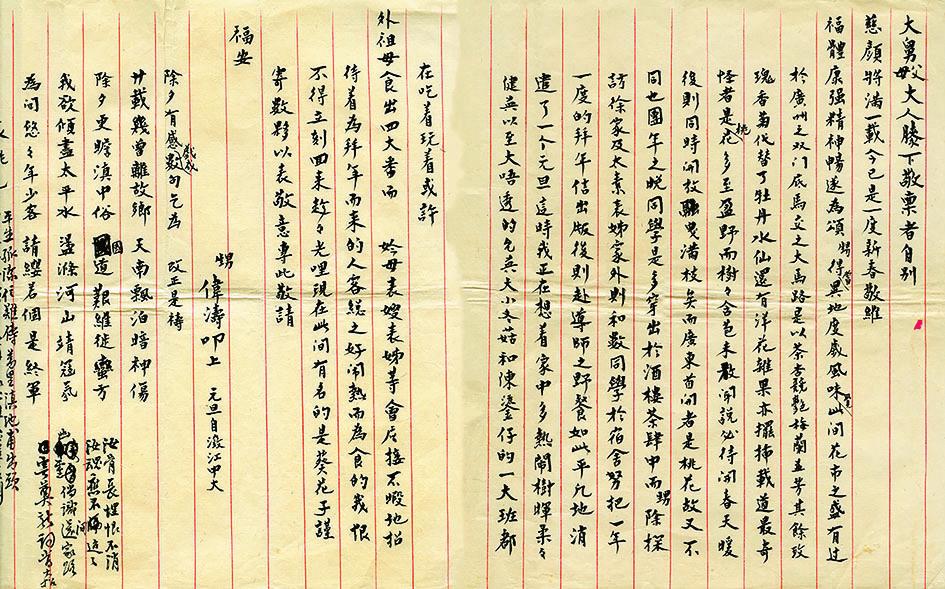 大舅父母大人膝下敬禀者自別
慈顏將滿一載今已是一度新春敬維
福體康强精神暢遂為頌甥得嘗異地度歲風味此間花市之盛有過
於廣州之双门底馬交之大馬路是以茶杏競艷梅蘭並芳其餘玫
瑰香菊代替了牡丹水仙還有洋花雜果亦擺拂載道最奇
怪者是桃花多至盈野而樹々含苞未散聞說必待開春天暖
後則同時開放搖曳滿枝矣而廣東首開者是桃花故又不
同也團年之晚同學是多穿出於酒樓茶肆中而甥除探
訪徐家及太素表姊家外則和數同學於宿舍努把一年
一度的拜年信出版後則赴導師之野餐如此平凡地消
遣了一个元旦這時我正在想着家中多熱鬧樹暉柔々
健英以至大唔透的允英大小冬菇和陳鎏仔的一大班都
在吃着玩着或許
外祖母食出四大番而 妗母表嫂表姊等會应接不暇地招
待着為拜年而来的人客総之好闹熱而為食的我恨
不得立刻回来趁々老哩現在此間有名的是葵花子謹
寄數夥以表敬意專此敬請
福安
甥 偉濤叩上 元旦自澂江中大
除夕有感數句乞為 改正是禱
廿載幾曾離故鄉 天南飄泊暗神傷
除夕更瞭滇中俗 國道艱難徙蠻方
我欲傾盡太平水 盪滌河山靖寇氛
為问悠々年少客 請纓若個是終軍
汝骨長埋恨不消